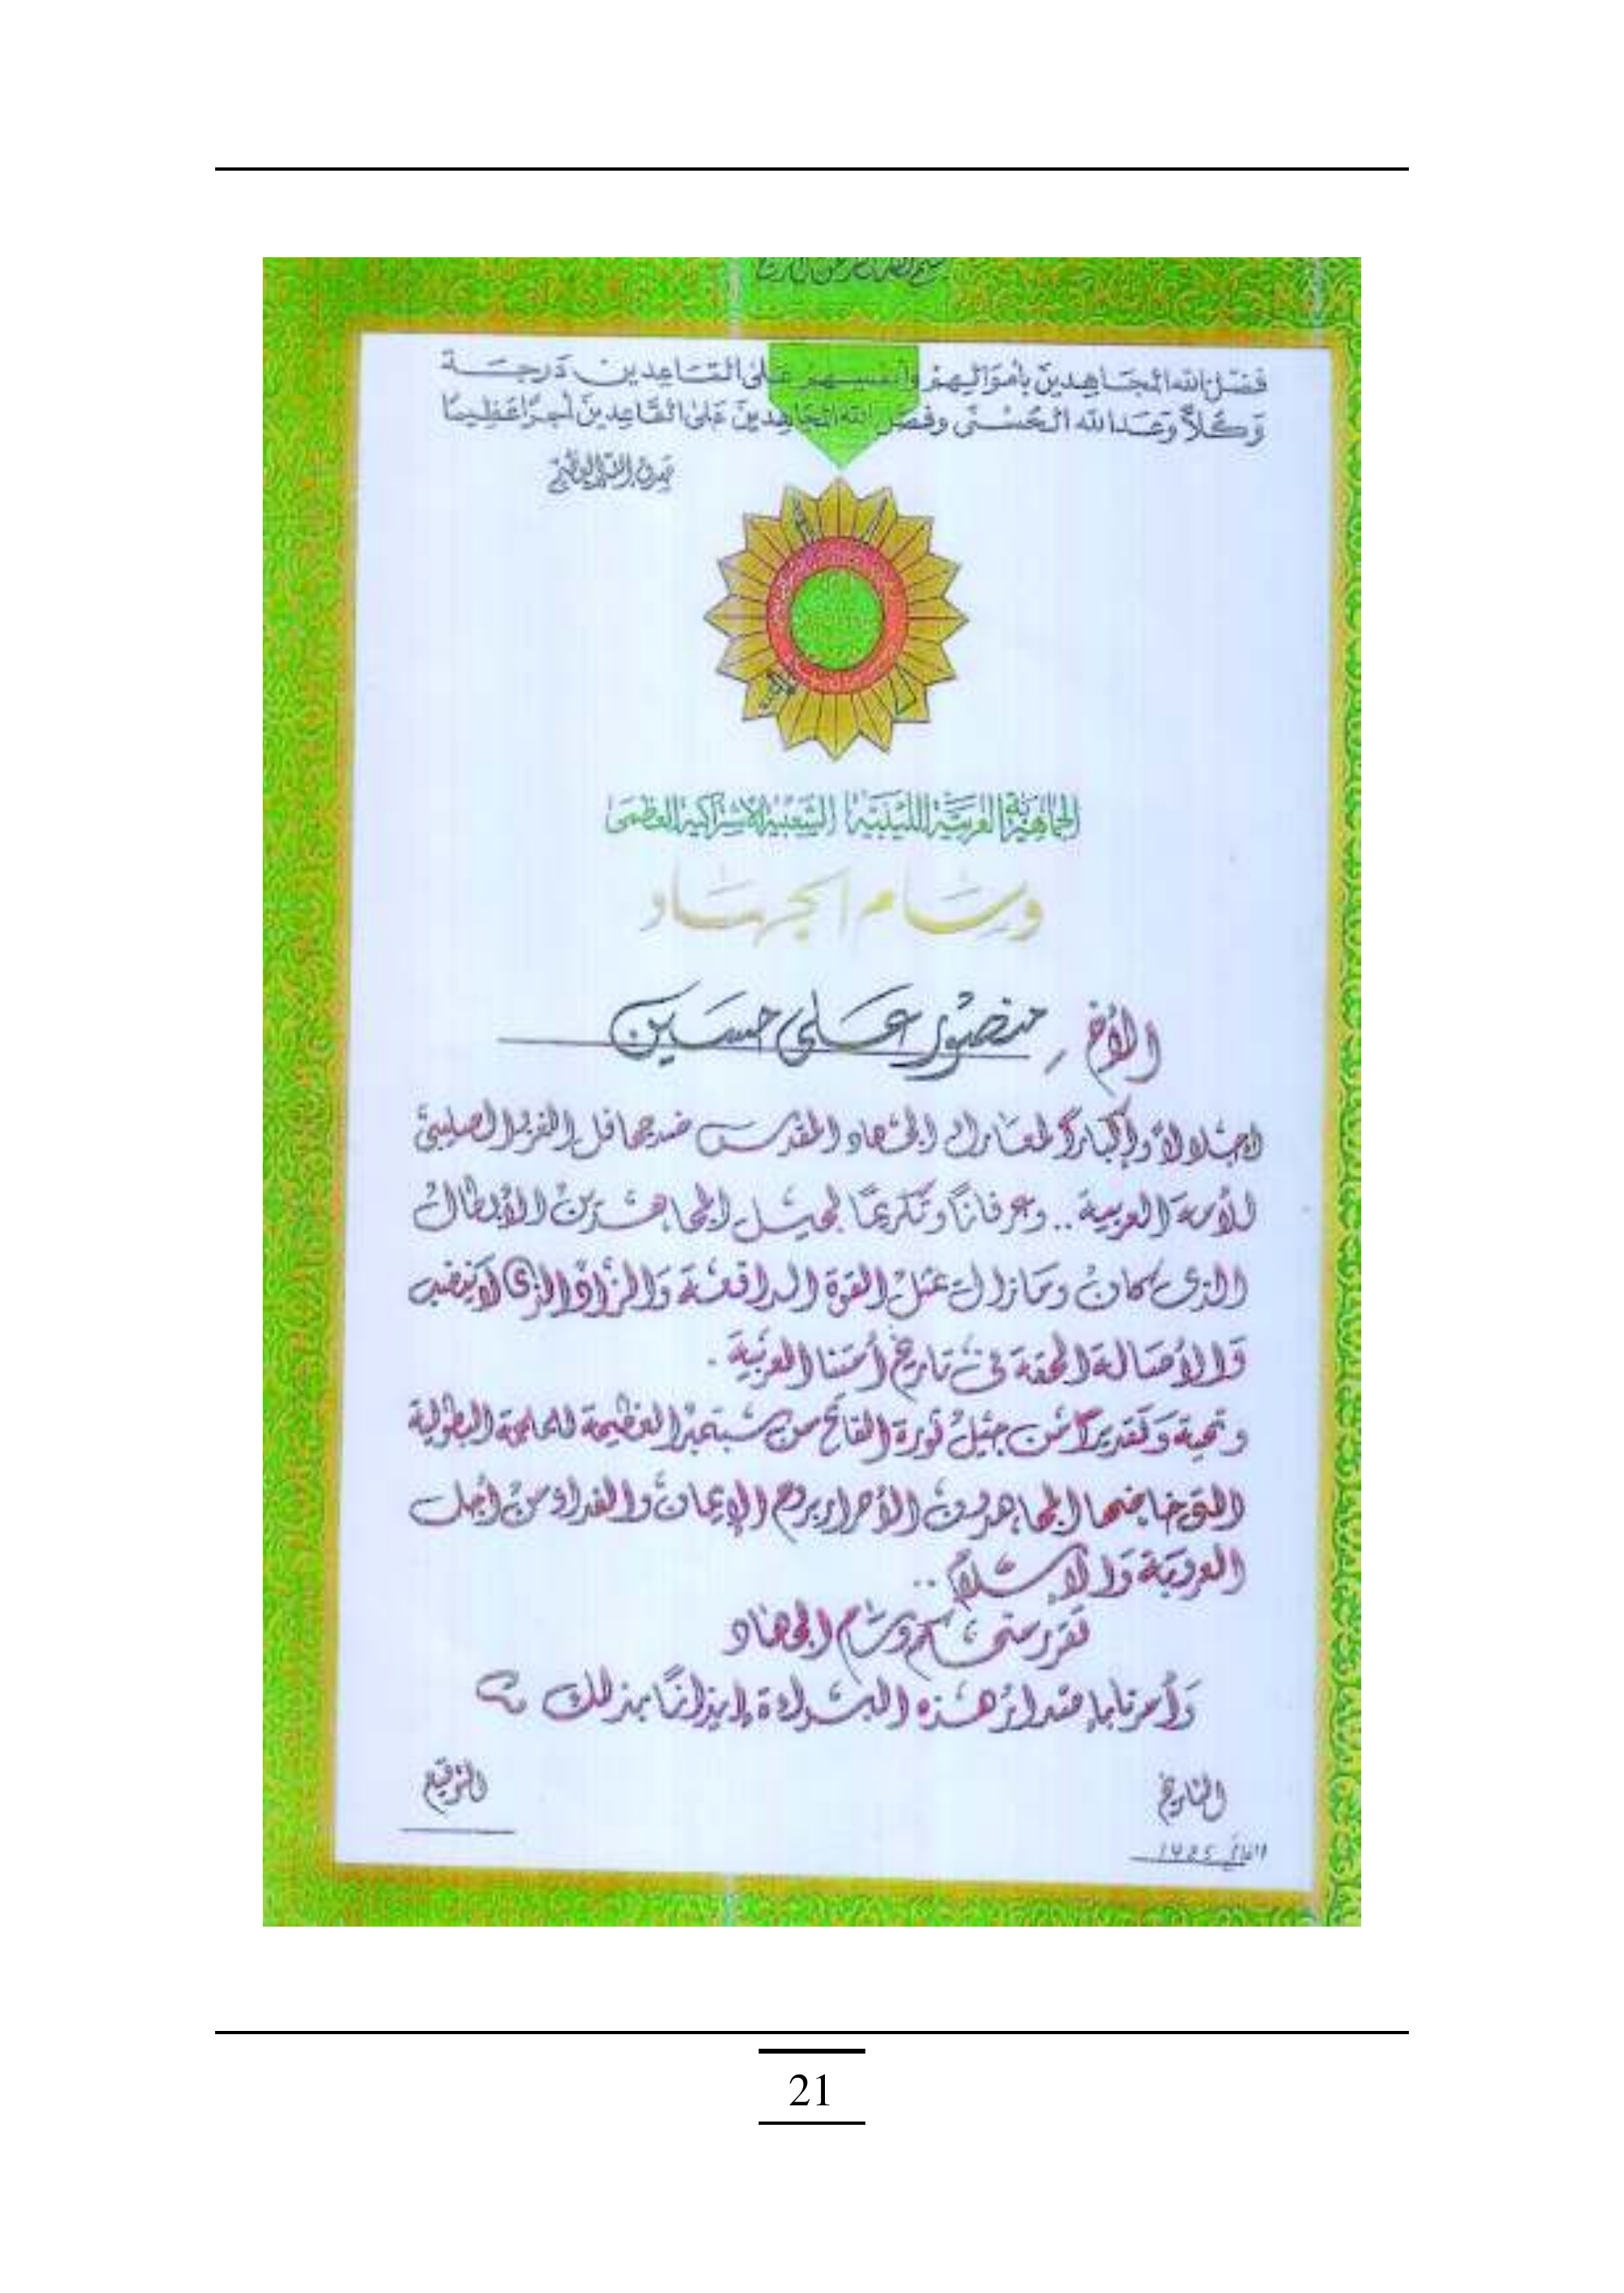 فضل الله المجاهدين بأموالهم وأنفسهم على القاعدين درجة
وكلاً وعد الله الحسنى وفضل الله المجاهدين على القاعدين أجرًا عظيمًا
صدق الله العظيم
الجماهيرية العربية الليبية الشعبية الاشتراكية العظمى
وسام الجهاد
الأخ منصور على حسين
إجلالاً وإكبارًا لمعارك الجهاد المقدس ضد جحافل الغزو الصليبي
للأمة العربية .. وعرفانًا وتكريمًا لجيل المجاهدين الأبطال
الذي كان ومازال يمثل القوة الدافعة والزاد الذي لا ينضب
والأصالة الحقة في تاريخ أمتنا العربية .
وتحية وتقديرًا من جيل ثورة الفاتح من سبتمبر العظيمة للملحمة البطولية
التي خاضها المجاهدون الأحرار بروح الإيمان والفداء من أجل
العروبة والإسلام ..
تقرر منحكم وسام الجهاد
وأمرنا بإصدار هذه البراءة إيذانًا بذلك
التاريخ
التوقيع
21